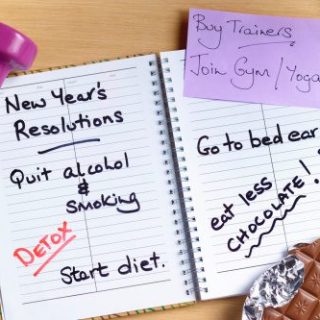 New Year's
Resolutions
Quit alcohol
&
Smoking
DETOX
Start diet.
Buy Trainers.
Join Gym/Yoga
Go to bed ear
eat less
CHOCOLATE!